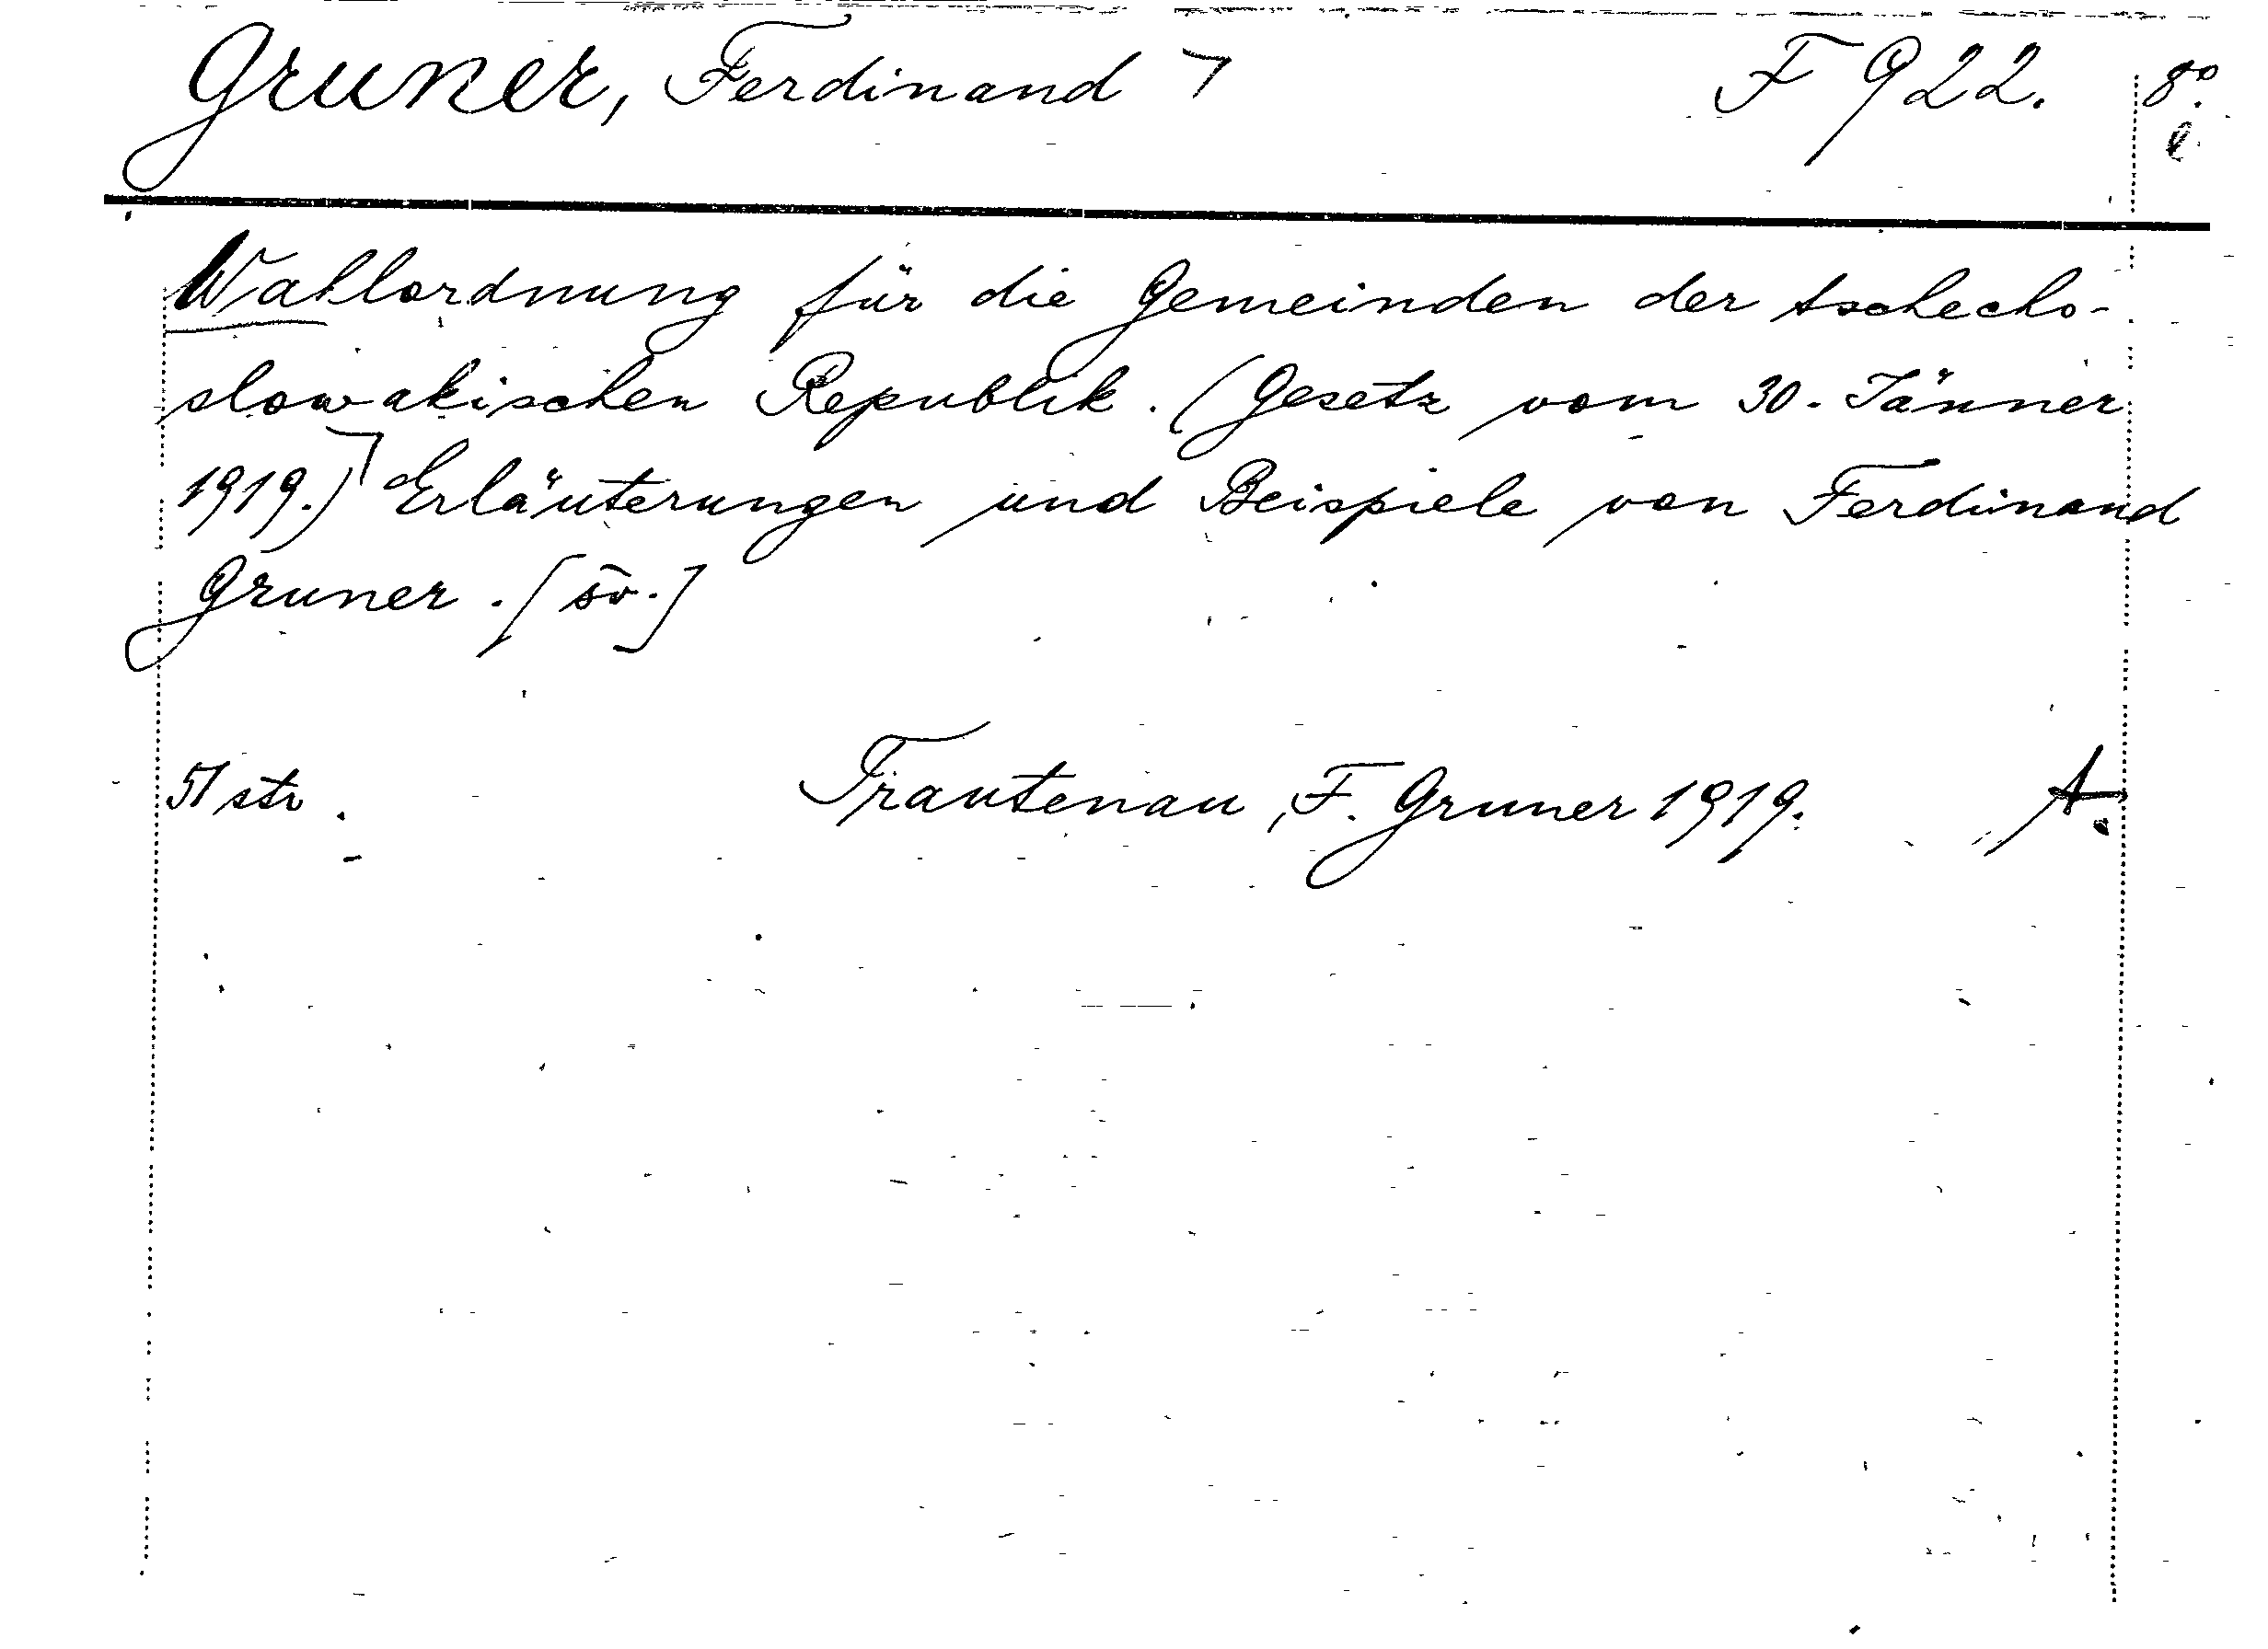 Gruner, Ferdinand ¬ F 922. 8°.
l.
Wahlordnung für die Gemeinden der tschecho-
slowakischen Republik. (Gesetz vom 30. Jänner
1919.)¬ Erläuterungen und Beispiele von Ferdinand
Gruner. [sv.]
51 str. Trautenau, F. Gruner 1919. A.